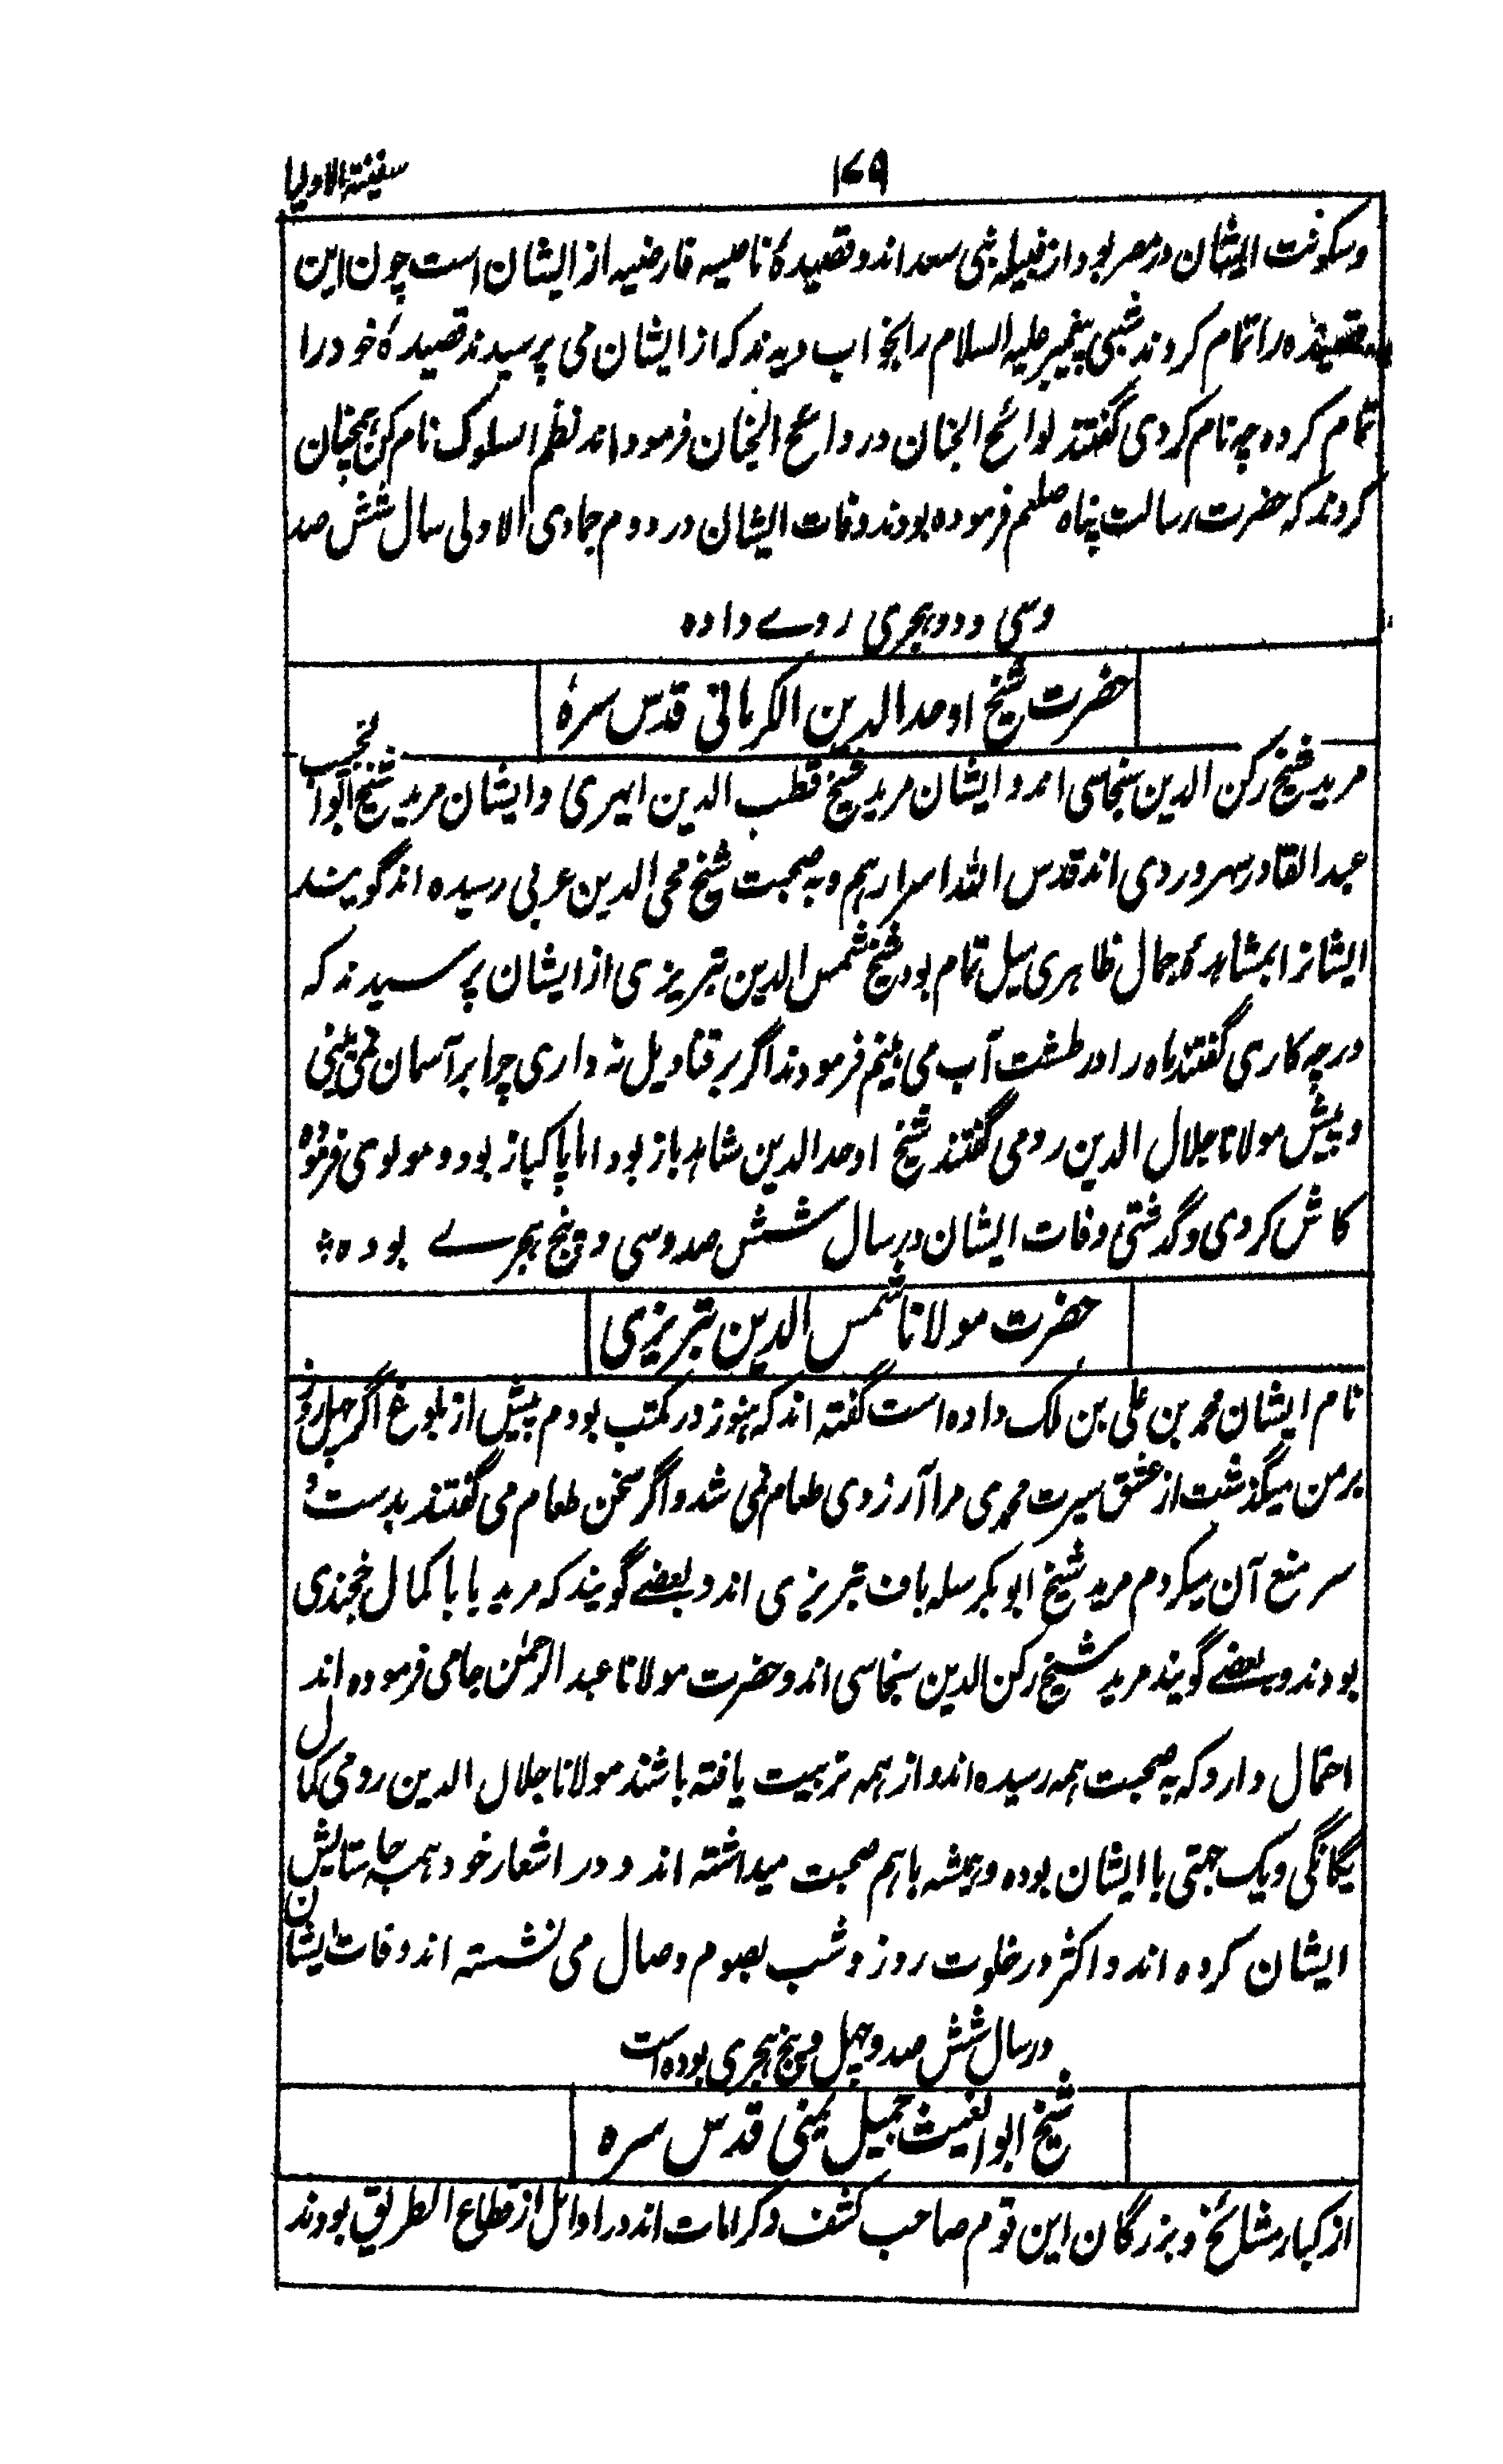 سفینۃ الاولیا ۱۷۹
وسکونت ایشان در مصر بود از قبیلہ بنی سعد اند و قصیدۂ تائیه فارضیہ از ایشان است چون این
قصیدہ را تمام کردند شبی پیغمبر علیہ السلام را بخواب دیدند کہ از ایشان می پرسیدند قصیدۂ خود را
تمام کردہ چہ نام کردی گفتند لوائح الجنان و روائح الجنان فرمودند نظم السلوک نام کن ہمچنان
کردند کہ حضرت رسالت پناہ صلعم فرمودہ بودند وفات ایشان در دوم جمادی الاولی سال شش صد
وسی و دو ہجری روے دادہ
حضرت شیخ اوحدالدین الکرمانی قدس سرہٗ
مرید شیخ رکن الدین سنجاسی اند و ایشان مرید شیخ قطب الدین ابہری و ایشان مرید شیخ ابوالنجیب
عبدالقادر سہروردی اند قدس اللہ اسرارہم و بہ صحبت شیخ محی الدین عربی رسیدہ اند گویند
ایشانرا بمشاہدۂ جمال ظاہری میل تمام بود شیخ شمس الدین تبریزی از ایشان پرسیدند کہ
در چہ کاری گفتند ماہ را در طشت آب می بینم فرمودند اگر بر قفا دمیل نہ داری چرا بر آسمان نمی بینی
و پیش مولانا جلال الدین رومی گفتند شیخ اوحدالدین شاہد باز بود اما پاکباز بود و مولوی فرمودہ
کاش کردی و گذشتی وفات ایشان در سال شش صد و سی و پنج ہجرے بودہ
حضرت مولانا شمس الدین تبریزی
نام ایشان محمد بن علی بن ملک دادہ است گفتہ اند کہ ہنوز در مکتب بودم پیش از بلوغ اگر چہل روز
بر من میگذشت از عشق سیرت محمدی مرا آرزوی طعام نمی شد و اگر سخن طعام می گفتند بدست و
سر منع آن میکردم مرید شیخ ابوبکر سلہ باف تبریزی اند و بعضے گویند کہ مرید بابا کمال خجندی
بودند و بعضے گویند مرید شیخ رکن الدین سنجاسی اند و حضرت مولانا عبدالرحمٰن جامی فرمودہ اند
احتمال دارد کہ بہ صحبت ہمہ رسیدہ اند و از ہمہ تربیت یافتہ باشند مولانا جلال الدین رومی کمال
یگانگی و یک جہتی با ایشان بودہ و ہمیشہ باہم صحبت میداشتہ اند و در اشعار خود ہمہ جا ستایش
ایشان کردہ اند و اکثر در خلوت روز و شب بصوم وصال می نشستہ اند وفات ایشان
در سال شش صد و چہل و پنج ہجری بودہ است
شیخ ابوالغیث جمیل یمنی قدس سرہ
از کبار مشائخ و بزرگان این قوم صاحب کشف و کرامات اند در اوائل از قطاع الطریق بودند